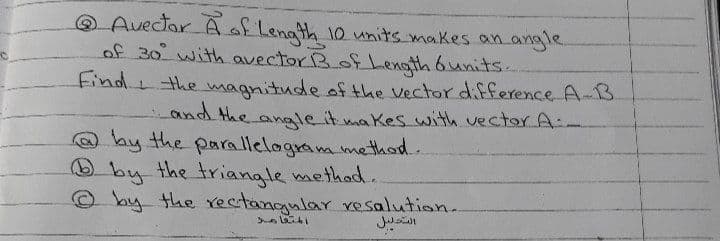 ② Avector A⃗ of Length 10 units makes an angle
of 30° with avector B⃗ of Length 6 units.
Find : the magnitude of the vector difference A-B
and the angle it makes with vector A:-
ⓐ by the parallelogram method.
ⓑ by the triangle method.
ⓒ by the rectangular resolution.
التحليل